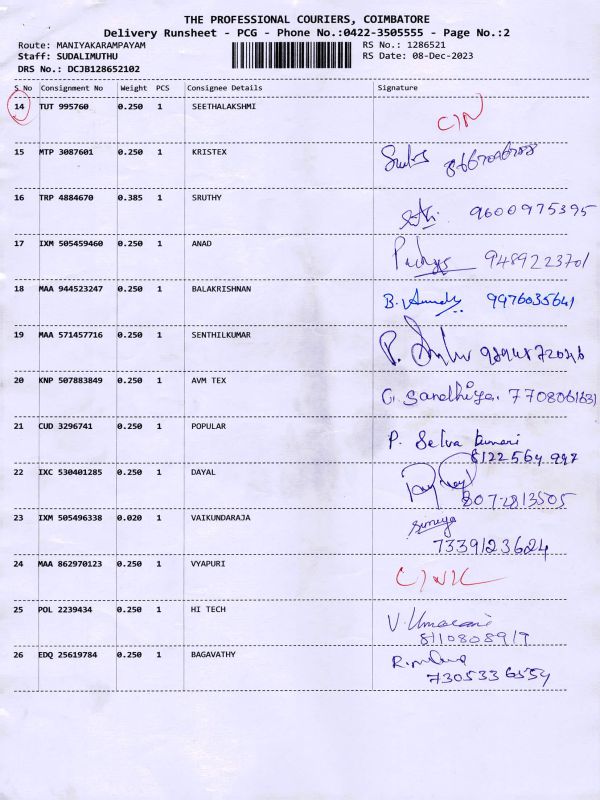 THE PROFESSIONAL COURIERS, COIMBATORE
Delivery Runsheet - PCG - Phone No.:0422-3505555 - Page No.:2
Route: MANIYAKARAMPAYAM RS No.: 1286521
Staff: SUDALIMUTHU RS Date: 08-Dec-2023
DRS No.: DCJB128652102
S No Consignment No Weight PCS Consignee Details Signature
14 TUT 995760 0.250 1 SEETHALAKSHMI
15 MTP 3087601 0.250 1 KRISTEX
16 TRP 4884670 0.385 1 SRUTHY
9600975395
17 IXM 505459460 0.250 1 ANAD
9489223701
18 MAA 944523247 0.250 1 BALAKRISHNAN
9976035641
19 MAA 571457716 0.250 1 SENTHILKUMAR
20 KNP 507883849 0.250 1 AVM TEX
G. Sandhiya.
21 CUD 3296741 0.250 1 POPULAR
P. Selva kumari
8122564997
22 IXC 530401285 0.250 1 DAYAL
8072813505
23 IXM 505496338 0.020 1 VAIKUNDARAJA
7339123624
24 MAA 862970123 0.250 1 VYAPURI
25 POL 2239434 0.250 1 HI TECH
V. Umarani
26 EDQ 25619784 0.250 1 BAGAVATHY
7305336554